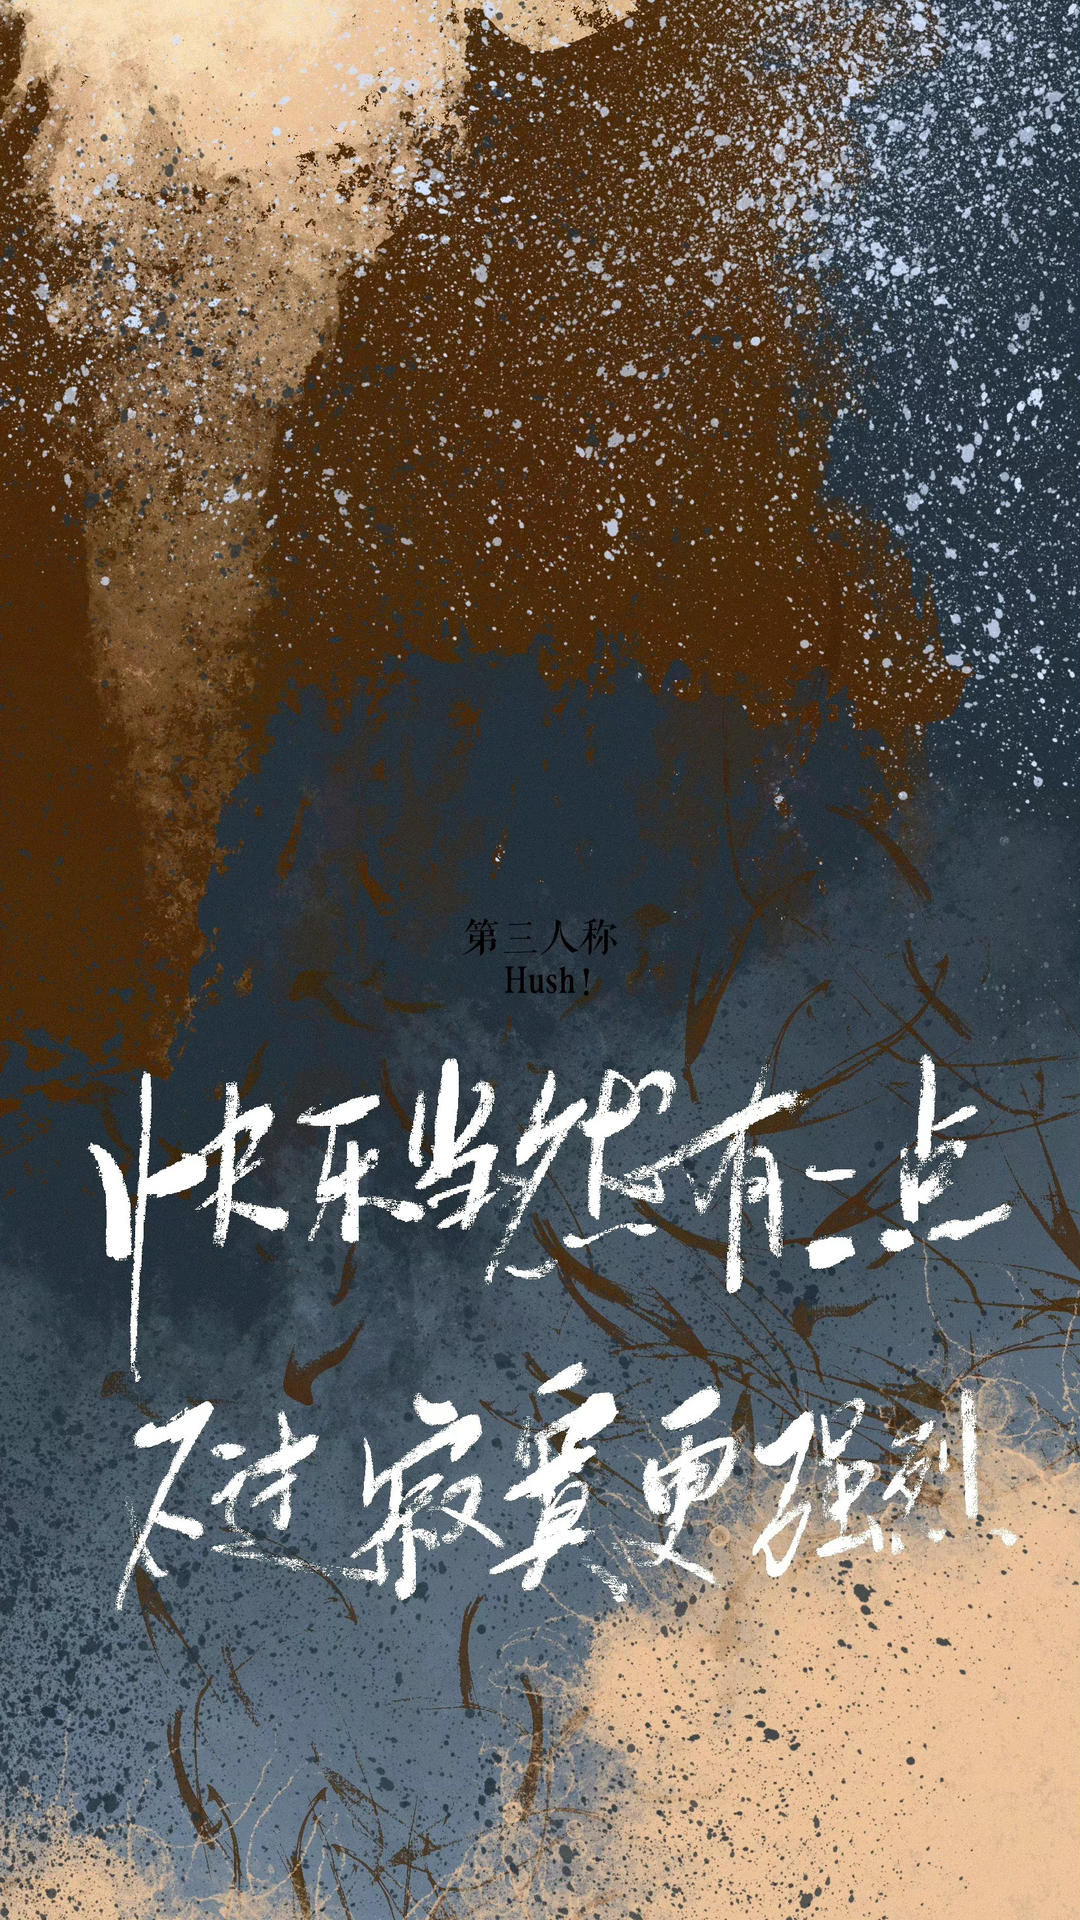 第三人称
Hush!
快乐当然有一点
不过寂寞更强烈